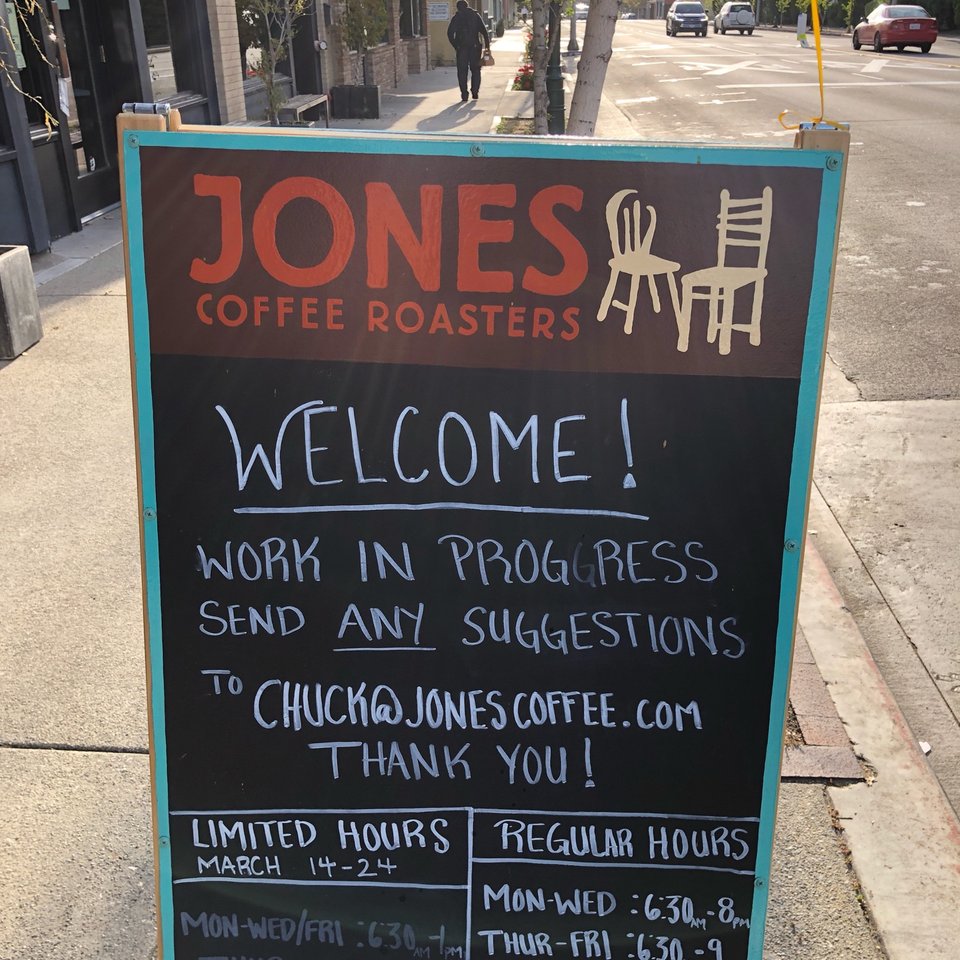 JONES
COFFEE ROASTERS
WELCOME!
WORK IN PROGGRESS
SEND ANY SUGGESTIONS
TO CHUCK@JONESCOFFEE.COM
THANK YOU!
LIMITED HOURS
MARCH 14-24
MON-WED/FRI :630AM-1PM
REGULAR HOURS
MON-WED :630AM-8PM
THUR-FRI :630-9